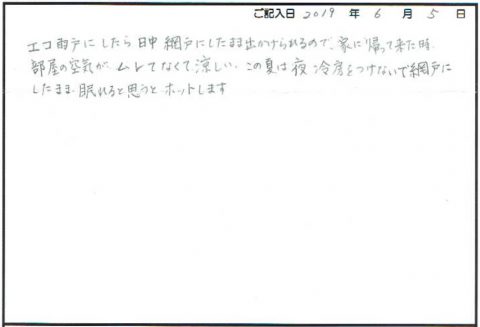 ご記入日 2019 年 6 月 5 日
エコ雨戸にしたら日中網戸にしたまま出かけられるので、家に帰って来た時
部屋の空気が、ムレてなくて涼しい。この夏は夜冷房をつけないで網戸に
したまま眠れると思うとホットします